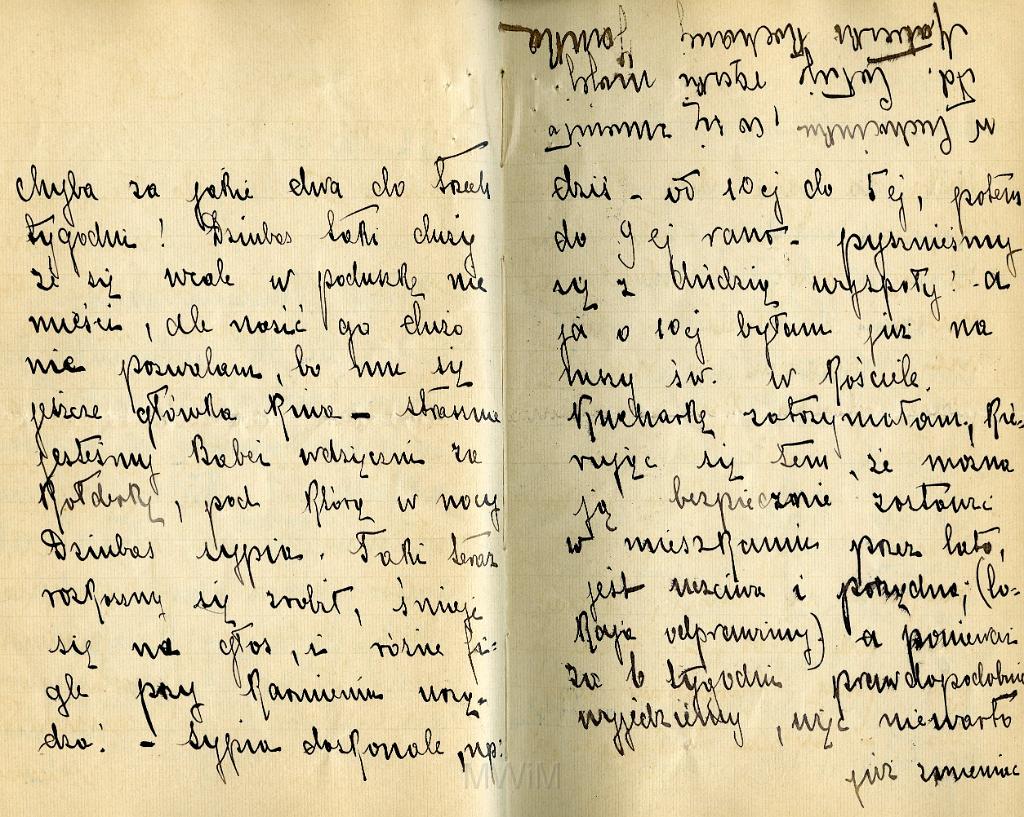 chyba za jakie dwa do trzech
tygodni! Dziubas taki duży
że się wcale w poduszkę nie
mieści, ale nosić go dużo
nie pozwalam, bo mu się
jeszcze główka kiwa – strasznie
jesteśmy Babci wdzięczni za
kołderkę, pod którą w nocy
Dziubas sypia. Taki teraz
rozkoszny się zrobił, śmieje
się na głos, i różne fi-
gle przy karmieniu urzą-
dza! – Sypia doskonale, np:
dziś – od 10 ej do 5ej, potem
do 9 ej rano – pysznieśmy
się z dzidzią wyspały! – a
ja o 10ej byłam już na
mszy św. w kościele.
Kucharkę zatrzymałam, kie-
rując się tem, że można
ją bezpiecznie zostawić
w mieszkaniu przez lato,
jest uczciwa i porządna; (lo-
kaja odprawimy) a ponieważ
za 6 tygodni prawdopodobnie
wyjedziemy, więc niewarto
już zmieniać
w kuchcinku, co się zmieniła
Id. Całuję rączki
Mateczki kochanej Janka
MWiM